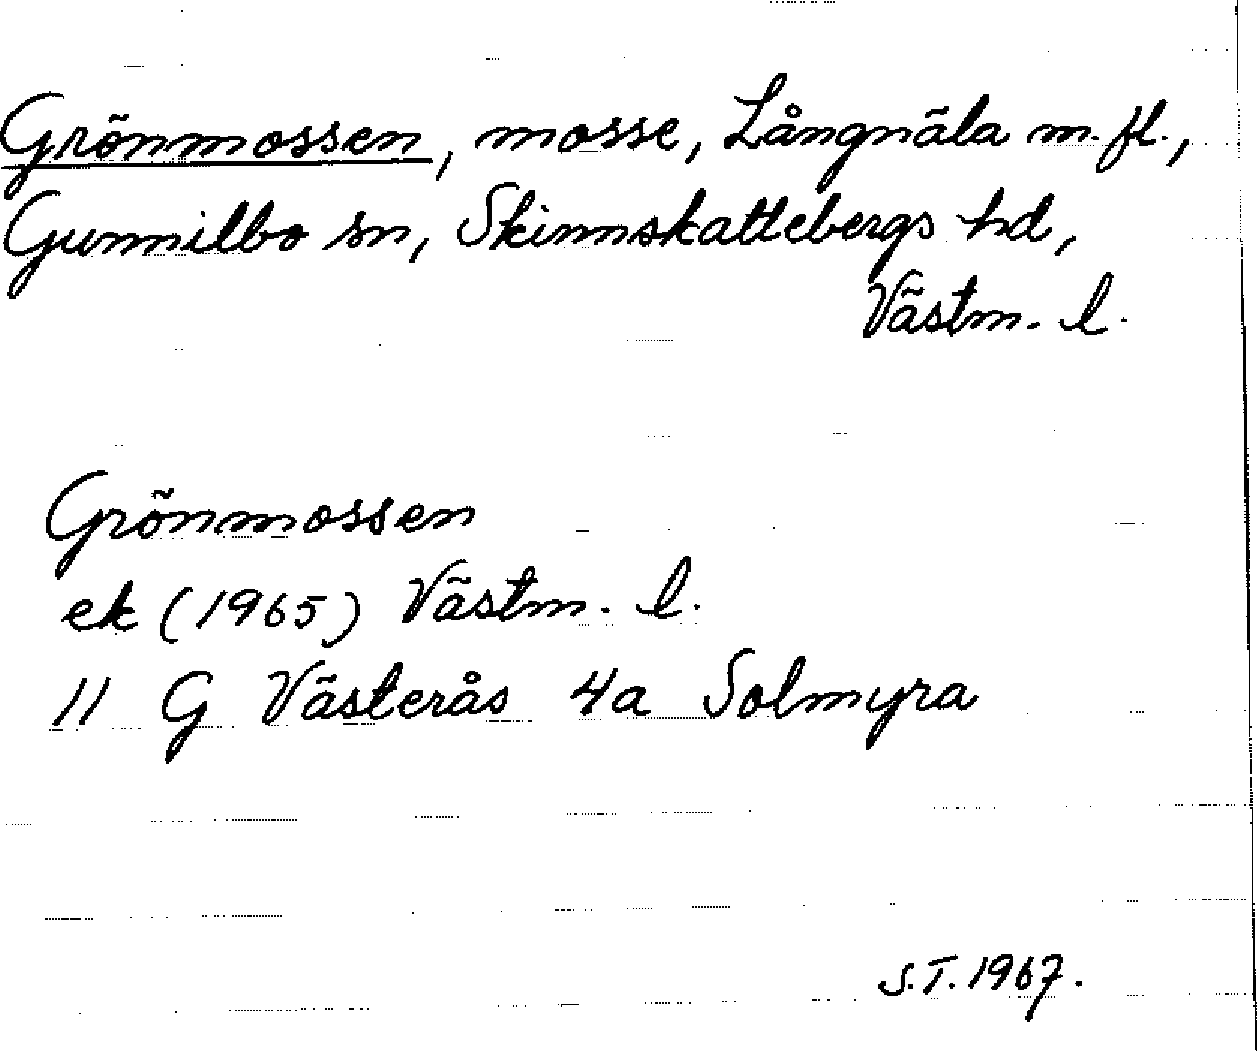 Grönmossen, mosse, Långnäla m. fl.,
Gunnilbo sn, Skinnskattebergs hd,
Västm. l.
Grönmossen
ek (1965) Västm. l.
11 G Västerås 4a Solmyra
S.T. 1967.